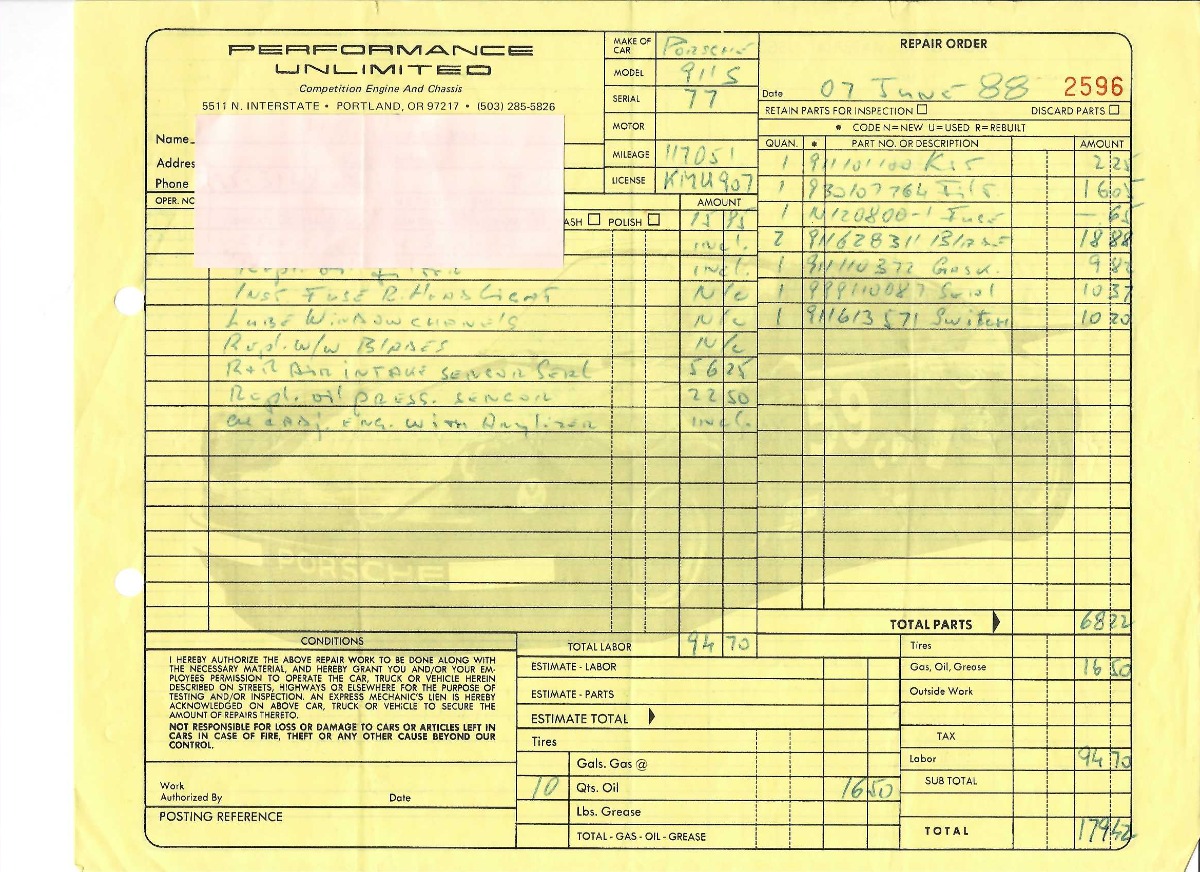 PERFORMANCE
UNLIMITED
Competition Engine And Chassis
5511 N. INTERSTATE • PORTLAND, OR 97217 • (503) 285-5826
Name
Addres
Phone
OPER. NO
MAKE OF CAR Porsche
MODEL 911S
SERIAL 77
MOTOR
MILEAGE 117051
LICENSE KMU907
REPAIR ORDER
Date 07 June 88 2596
RETAIN PARTS FOR INSPECTION DISCARD PARTS
* CODE N=NEW U=USED R=REBUILT
QUAN. * PART NO. OR DESCRIPTION AMOUNT
1 911101100 2 25
1 930107764 Filt. 16 05
1 N120800-1 Fuse — 65
2 911628311 Blade 18 88
1 911110372 Gask. 9 82
1 999110087 Seal 10 37
1 911613571 Switch 10 20
AMOUNT
ASH POLISH 15 95
incl.
Repl. oil filter incl.
Inst Fuse R. Headlight N/c
Lube Window channels N/c
Repl. W/W Blades N/c
R+R Air intake sencor Seal 56 25
Repl. oil press. sencor 22 50
adj. eng. with Anylizer incl.
TOTAL PARTS 68 22
TOTAL LABOR 94 70
CONDITIONS
I HEREBY AUTHORIZE THE ABOVE REPAIR WORK TO BE DONE ALONG WITH
THE NECESSARY MATERIAL, AND HEREBY GRANT YOU AND/OR YOUR EM-
PLOYEES PERMISSION TO OPERATE THE CAR, TRUCK OR VEHICLE HEREIN
DESCRIBED ON STREETS, HIGHWAYS OR ELSEWHERE FOR THE PURPOSE OF
TESTING AND/OR INSPECTION. AN EXPRESS MECHANIC'S LIEN IS HEREBY
ACKNOWLEDGED ON ABOVE CAR, TRUCK OR VEHICLE TO SECURE THE
AMOUNT OF REPAIRS THERETO.
NOT RESPONSIBLE FOR LOSS OR DAMAGE TO CARS OR ARTICLES LEFT IN
CARS IN CASE OF FIRE, THEFT OR ANY OTHER CAUSE BEYOND OUR
CONTROL.
Work
Authorized By Date
POSTING REFERENCE
ESTIMATE - LABOR
ESTIMATE - PARTS
ESTIMATE TOTAL
Tires
Gals. Gas @
10 Qts. Oil 16 50
Lbs. Grease
TOTAL - GAS - OIL - GREASE
Tires
Gas, Oil, Grease 16 50
Outside Work
TAX
Labor 94 70
SUB TOTAL
TOTAL 179 42
PORSCHE